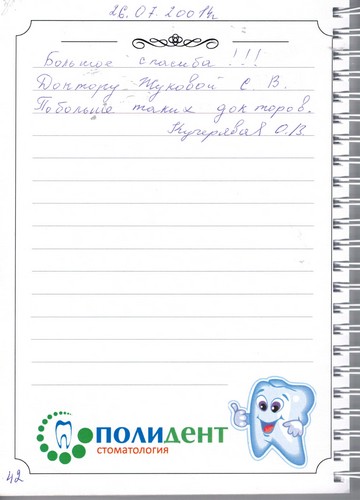 26.07.2001г.
Большое спасиба !!!
Доктору Жуковой С. В.
Побольше таких докторов.
Кучерявая О.В.
ПОЛИДЕНТ
СТОМАТОЛОГИЯ
42